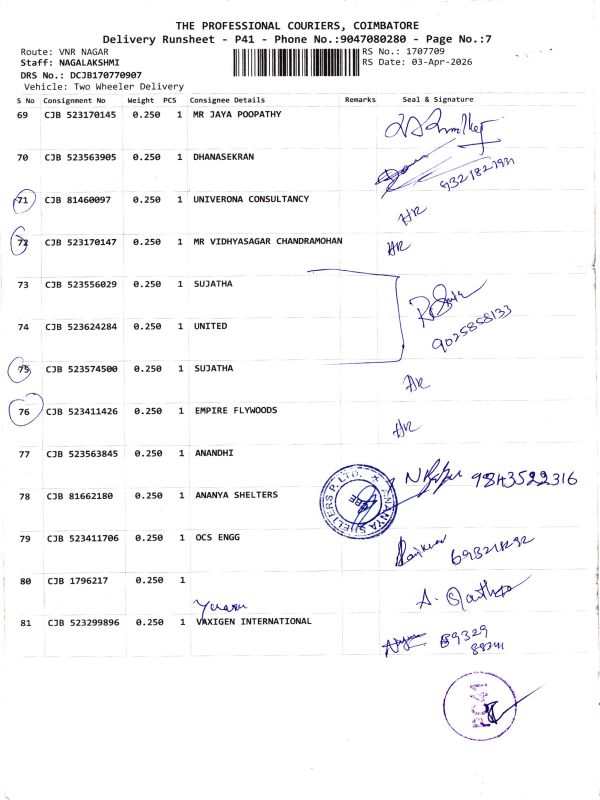 THE PROFESSIONAL COURIERS, COIMBATORE
Delivery Runsheet - P41 - Phone No.:9047080280 - Page No.:7
Route: VNR NAGAR RS No.: 1707709
Staff: NAGALAKSHMI RS Date: 03-Apr-2026
DRS No.: DCJB170770907
Vehicle: Two Wheeler Delivery
S No Consignment No Weight PCS Consignee Details Remarks Seal & Signature
69 CJB 523170145 0.250 1 MR JAYA POOPATHY
70 CJB 523563905 0.250 1 DHANASEKRAN
71 CJB 81460097 0.250 1 UNIVERONA CONSULTANCY
72 CJB 523170147 0.250 1 MR VIDHYASAGAR CHANDRAMOHAN
73 CJB 523556029 0.250 1 SUJATHA
74 CJB 523624284 0.250 1 UNITED 9025858133
75 CJB 523574500 0.250 1 SUJATHA
76 CJB 523411426 0.250 1 EMPIRE FLYWOODS
77 CJB 523563845 0.250 1 ANANDHI
9843522316
78 CJB 81662180 0.250 1 ANANYA SHELTERS ANANYA SHELTERS P. LTD. CBE
79 CJB 523411706 0.250 1 OCS ENGG
80 CJB 1796217 0.250 1
81 CJB 523299896 0.250 1 VAXIGEN INTERNATIONAL